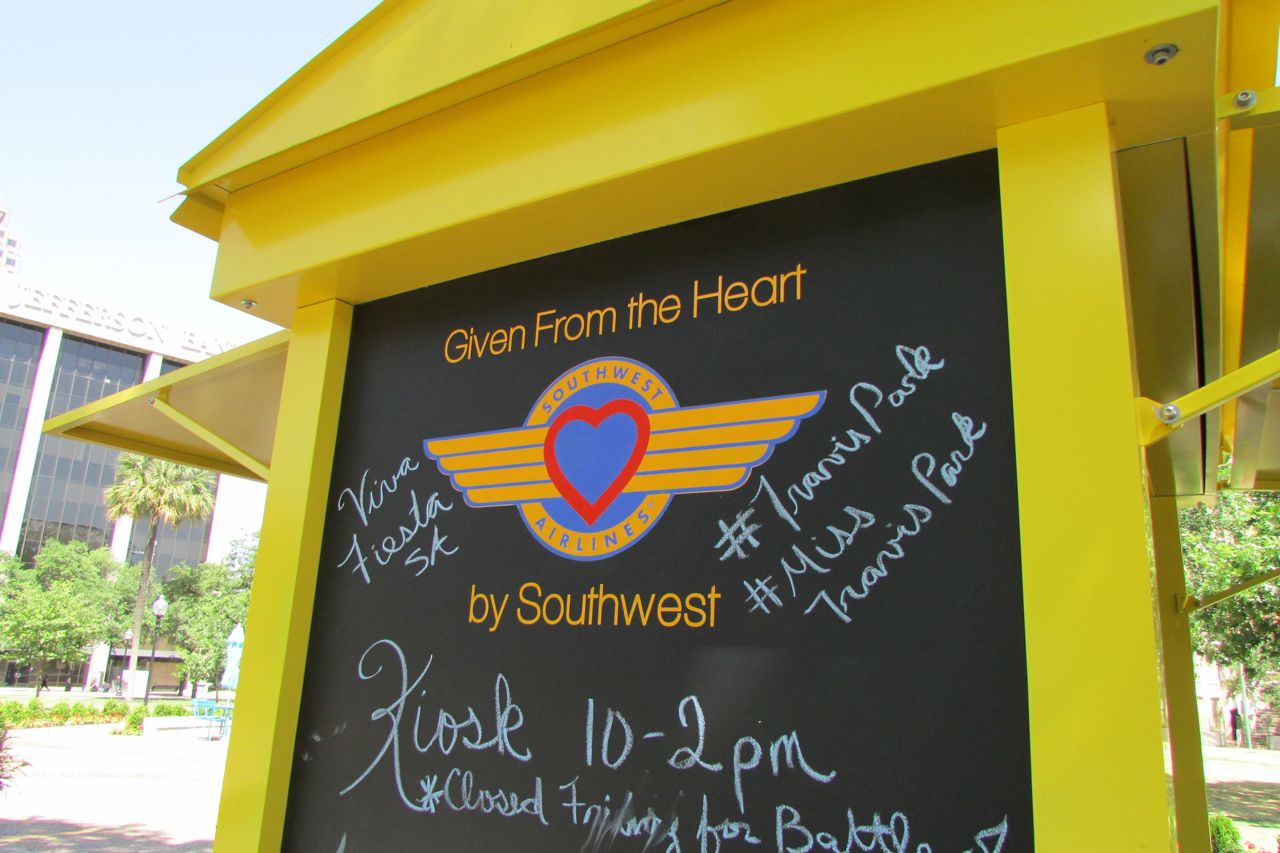 JEFFERSON BANK
Given From the Heart
SOUTHWEST
AIRLINES
by Southwest
Viva
Fiesta
SA
#Travis Park
#Miss
Travis Park
Kiosk 10-2pm
*Closed Friday for Battle